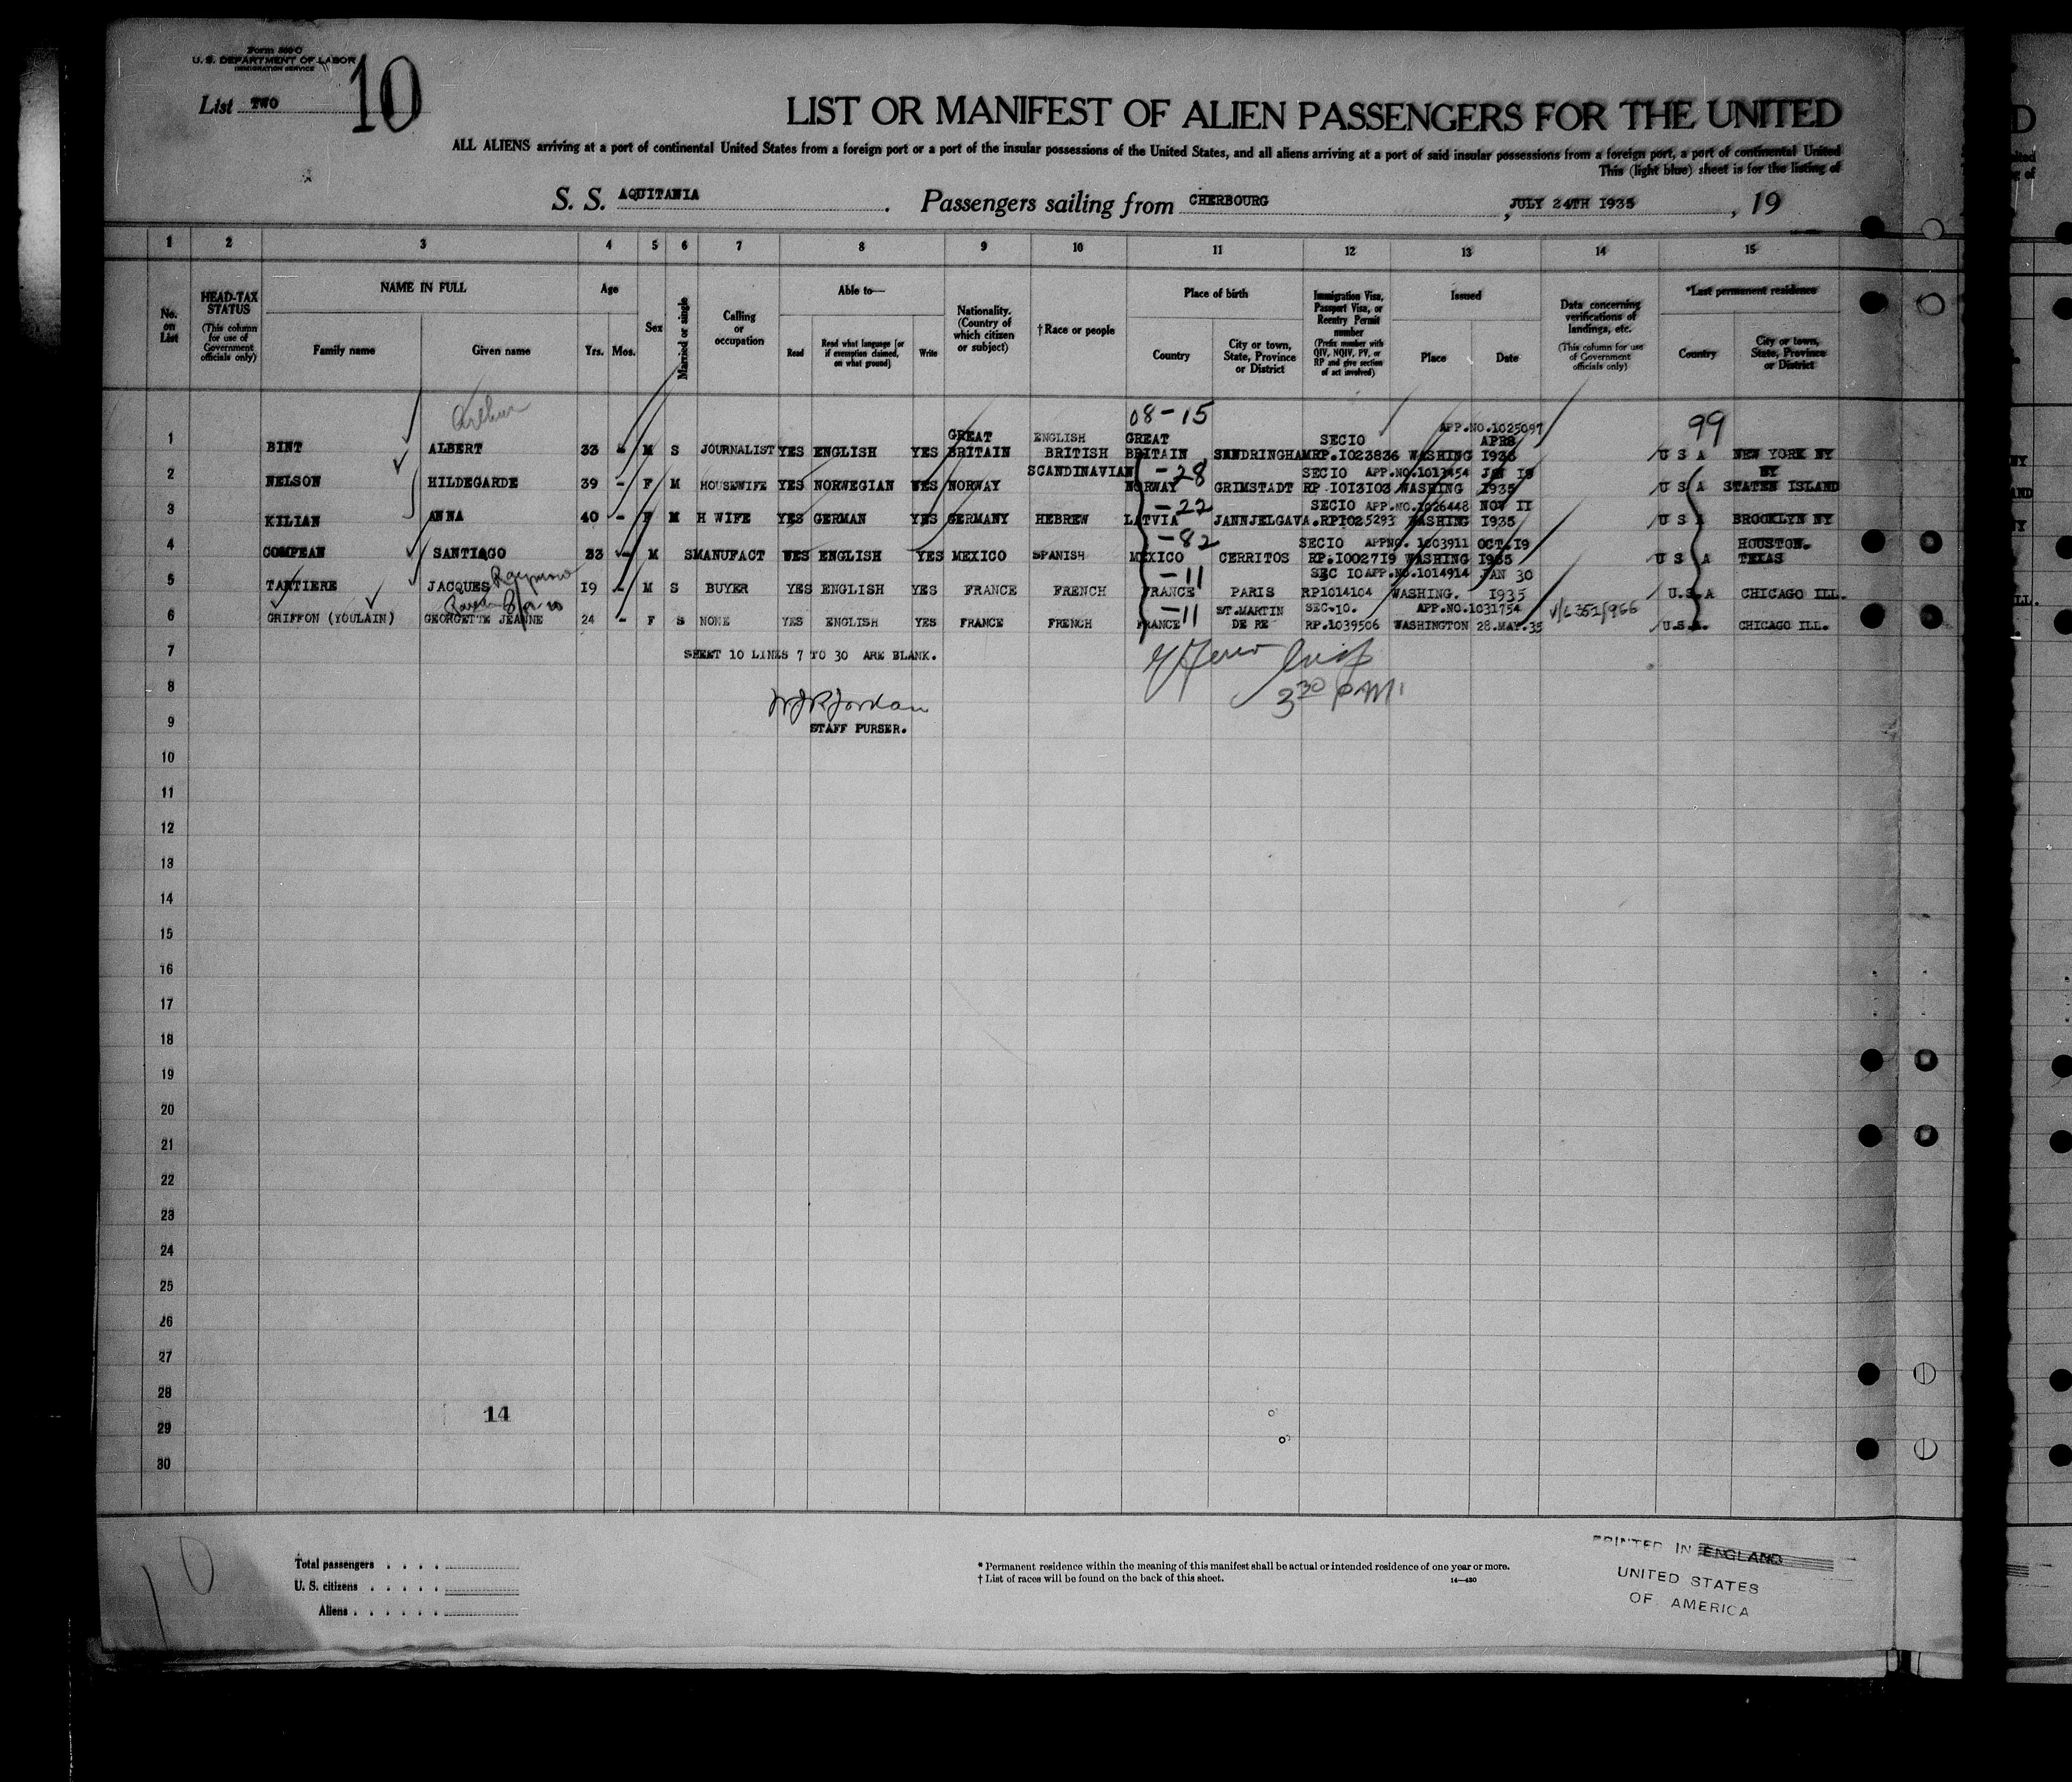 Form 500 C
U. S. DEPARTMENT OF LABOR
IMMIGRATION SERVICE
List TWO 10
LIST OR MANIFEST OF ALIEN PASSENGERS FOR THE UNITED
ALL ALIENS arriving at a port of continental United States from a foreign port or a port of the insular possessions of the United States, and all aliens arriving at a port of said insular possessions from a foreign port, a port of continental United
This (light blue) sheet is for the listing of
S. S. AQUITANIA . Passengers sailing from CHERBOURG , JULY 24TH 1935 , 19
1 2 3 4 5 6 7 8 9 10 11 12 13 14 15
No. on List
HEAD-TAX STATUS (This column for use of Government officials only)
NAME IN FULL
Family name Given name
Age
Yrs. Mos.
Sex
Married or single
Calling or occupation
Able to—
Read Read what language [or if exemption claimed, on what ground] Write
Nationality. (Country of which citizen or subject)
†Race or people
Place of birth
Country City or town, State, Province or District
Immigration Visa, Passport Visa, or Reentry Permit number (Prefix number with QIV, NQIV, PV, or RP and give section of act involved)
Issued
Place Date
Data concerning verifications of landings, etc. (This column for use of Government officials only)
*Last permanent residence
Country City or town, State, Province or District
Arthur 08-15 APP.NO.1025097 99
GREAT ENGLISH GREAT SECIO APR8
1 BINT ALBERT 33 - M S JOURNALIST YES ENGLISH YES BRITAIN BRITISH BRITAIN SANDRINGHAM RP.IO23836 WASHING 1935 U S A NEW YORK NY
SCANDINAVIAN -28 SECIO APP.NO.1013454 JAN 19 NY
2 NELSON HILDEGARDE 39 - F M HOUSEWIFE YES NORWEGIAN YES NORWAY NORWAY GRIMSTADT RP IOI3IO3 WASHING 1935 U S A STATEN ISLAND
-22 SECIO APP.NO.1026448 NOV II
3 KILIAN ANNA 40 - F M H WIFE YES GERMAN YES GERMANY HEBREW LATVIA JANNJELGAVA. RPIO25293 WASHING 1935 U S A BROOKLYN NY
-82 SECIO APPNO. 1003911 OCT.19 HOUSTON.
4 COMPEAN SANTIAGO 33 - M S MANUFACT YES ENGLISH YES MEXICO SPANISH MEXICO CERRITOS RP.IOO2719 WASHING 1935 U S A TEXAS
Raymond -11 SEC IO APP.NO.1014914 JAN 30
5 TARTIERE JACQUES 19 - M S BUYER YES ENGLISH YES FRANCE FRENCH FRANCE PARIS RP1014104 WASHING. 1935 U.S.A CHICAGO ILL.
-11 ST.MARTIN SEC.10. APP.NO.1031754 V/L 352/966
6 GRIFFON (YOULAIN) GEORGETTE JEANNE 24 - F S NONE YES ENGLISH YES FRANCE FRENCH FRANCE DE RE RP.1039506 WASHINGTON 28.MAY.35 U.S.A. CHICAGO ILL.
7 SHEET 10 LINES 7 TO 30 ARE BLANK.
8 W J R Jordan 3 30 P.M.
9 STAFF PURSER.
10
11
12
13
14
15
16
17
18
19
20
21
22
23
24
25
26
27
28
14
29
30
10
Total passengers . . . .
U. S. citizens . . . . .
Aliens . . . . . .
* Permanent residence within the meaning of this manifest shall be actual or intended residence of one year or more.
† List of races will be found on the back of this sheet.
14—430
PRINTED IN ENGLAND
UNITED STATES
OF AMERICA